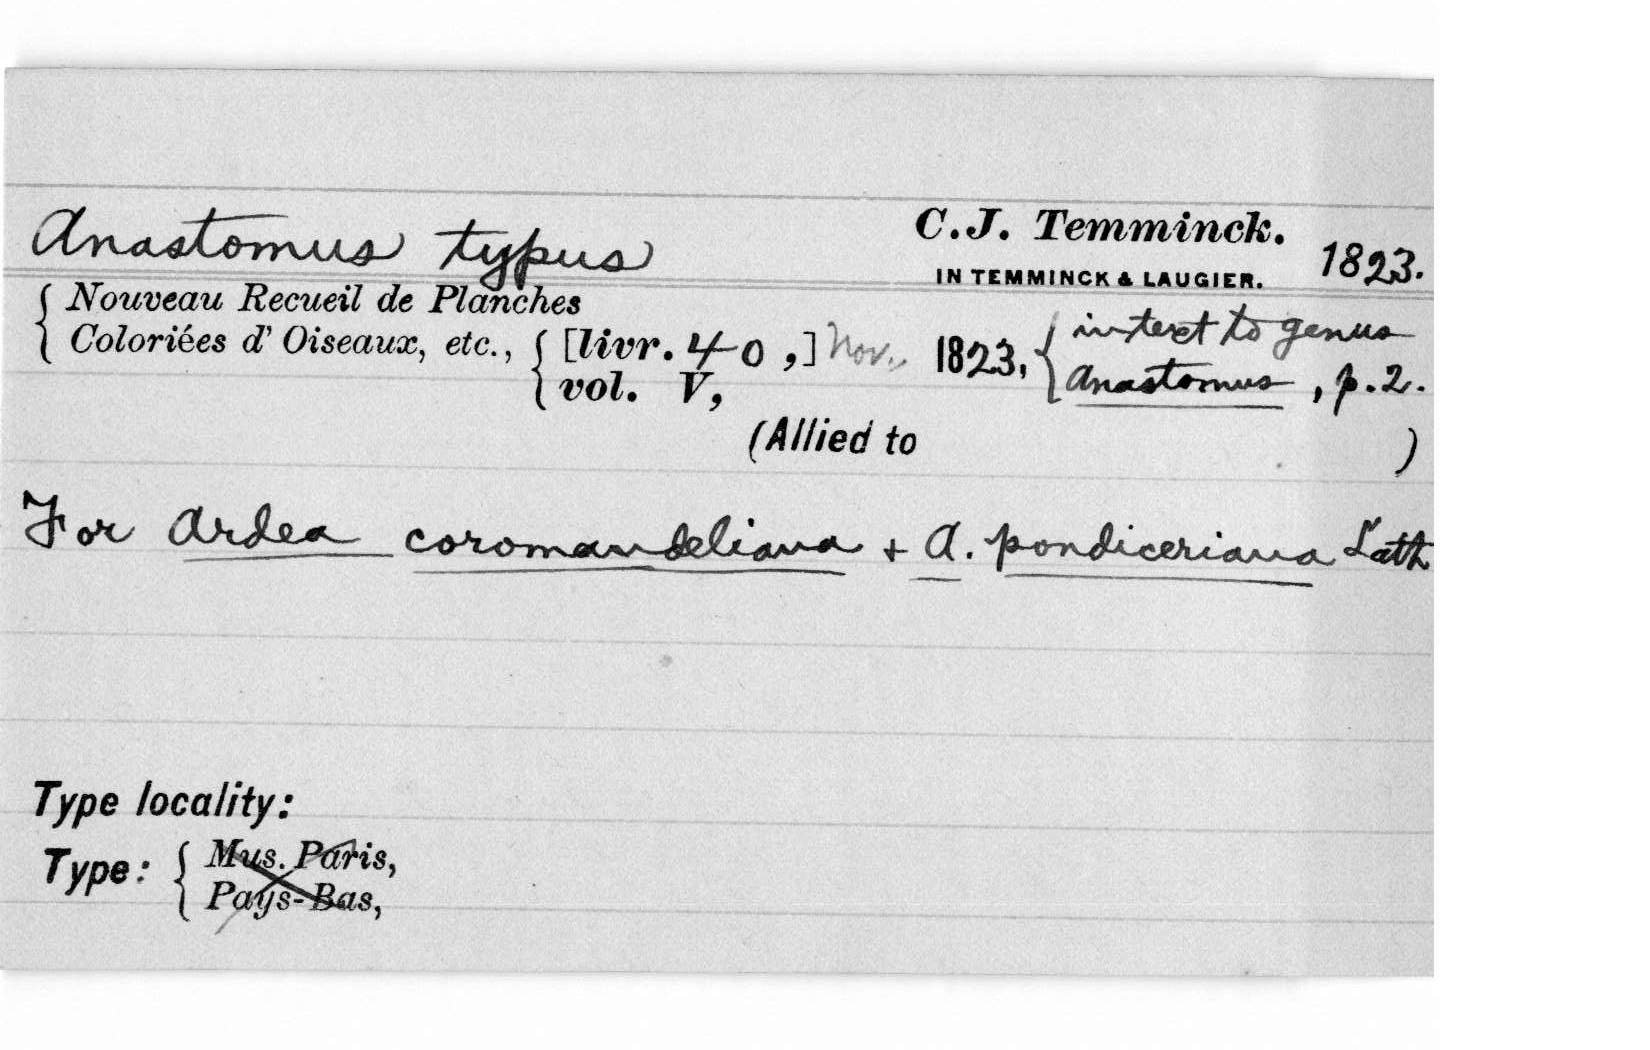 Anastomus typus C.J. Temminck. 1823.
IN TEMMINCK & LAUGIER.
{ Nouveau Recueil de Planches
Coloriées d' Oiseaux, etc., { [livr. 40,] Nov., 1823, { in text to genus
vol. V, Anastomus, p. 2.
(Allied to )
For Ardea coromandeliana + A. pondiceriana Lath
Type locality:
Type: { Mus. Paris,
Pays-Bas,